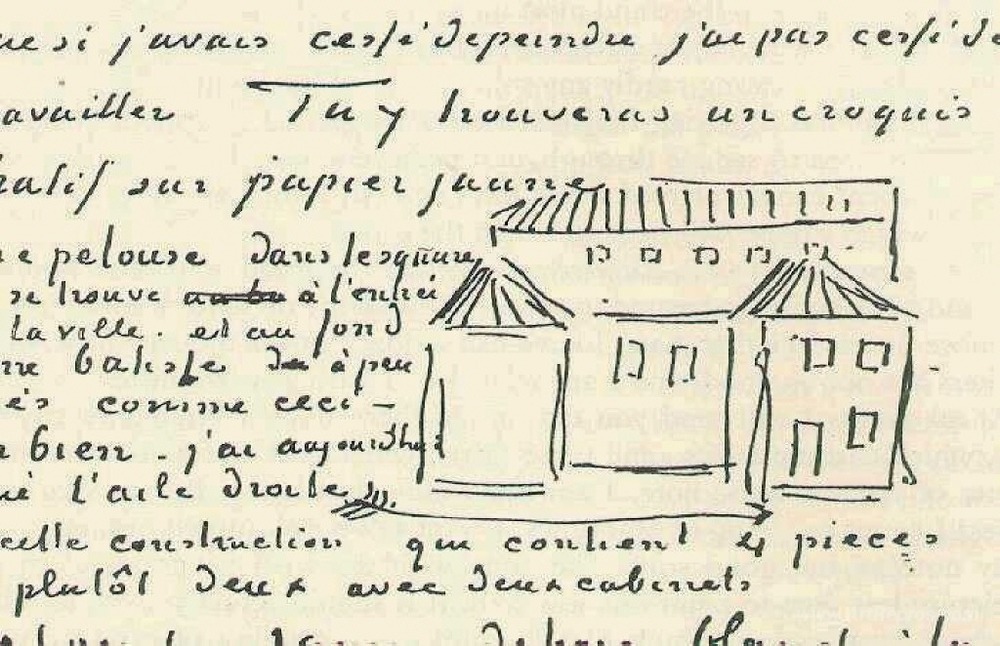 ue si j'avais cessé de peindre j'ai pas cessé de
availler Tu y trouveras un croquis
ratif sur papier jaune
e pelouse dans le square
se trouve à l'entrée
la ville. et au fond
ne batisse à peu
ès comme ceci –
bien. j'ai aujourd'hui
ué l'aile droite
cette construction qui contient 4 pieces
plutôt deux avec deux cabinets